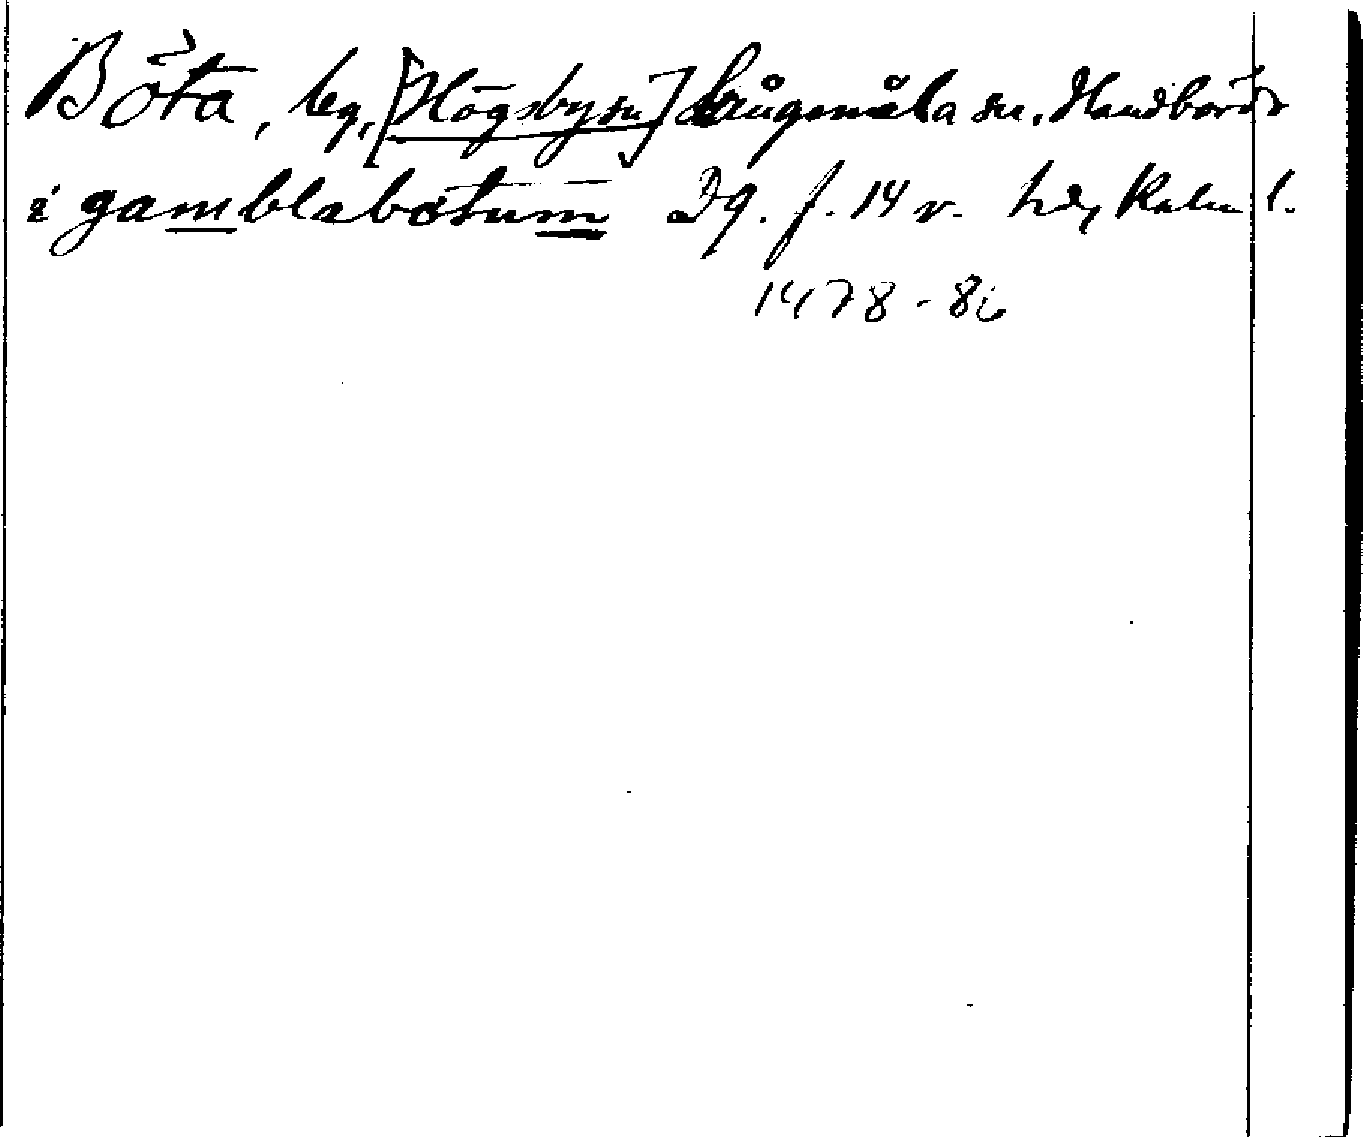 Böta, by, [Högsby sn] Långemåla sn. Handbörds
i gamblabotum D9. f. 14 v. hd, Kalm. l.
1478-86